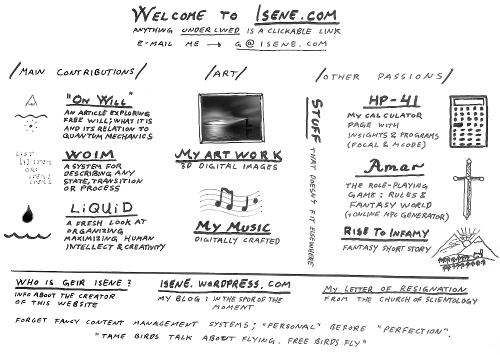 WELCOME TO ISENE.COM
ANYTHING UNDERLINED IS A CLICKABLE LINK
E-MAIL ME → G@ISENE.COM
/MAIN CONTRIBUTIONS/
"ON WILL"
AN ARTICLE EXPLORING
FREE WILL; WHAT IT IS
AND ITS RELATION TO
QUANTUM MECHANICS
WOIM
A SYSTEM FOR
DESCRIBING ANY
STATE, TRANSITION
OR PROCESS
LIQUID
A FRESH LOOK AT
ORGANIZING
MAXIMIZING HUMAN
INTELLECT & CREATIVITY
/ART/
MY ART WORK
3D DIGITAL IMAGES
MY MUSIC
DIGITALLY CRAFTED
STUFF THAT DOESN'T FIT ELSEWHERE
/OTHER PASSIONS/
HP-41
MY CALCULATOR
PAGE WITH
INSIGHTS & PROGRAMS
(FOCAL & MCODE)
Amar
THE ROLE-PLAYING
GAME: RULES &
FANTASY WORLD
(+ONLINE NPC GENERATOR)
RISE TO INFAMY
FANTASY SHORT STORY
WHO IS GEIR ISENE?
INFO ABOUT THE CREATOR
OF THIS WEBSITE
ISENE.WORDPRESS.COM
MY BLOG: IN THE SPUR OF THE
MOMENT
MY LETTER OF RESIGNATION
FROM THE CHURCH OF SCIENTOLOGY
FORGET FANCY CONTENT MANAGEMENT SYSTEMS; "PERSONAL" BEFORE "PERFECTION".
"TAME BIRDS TALK ABOUT FLYING. FREE BIRDS FLY"